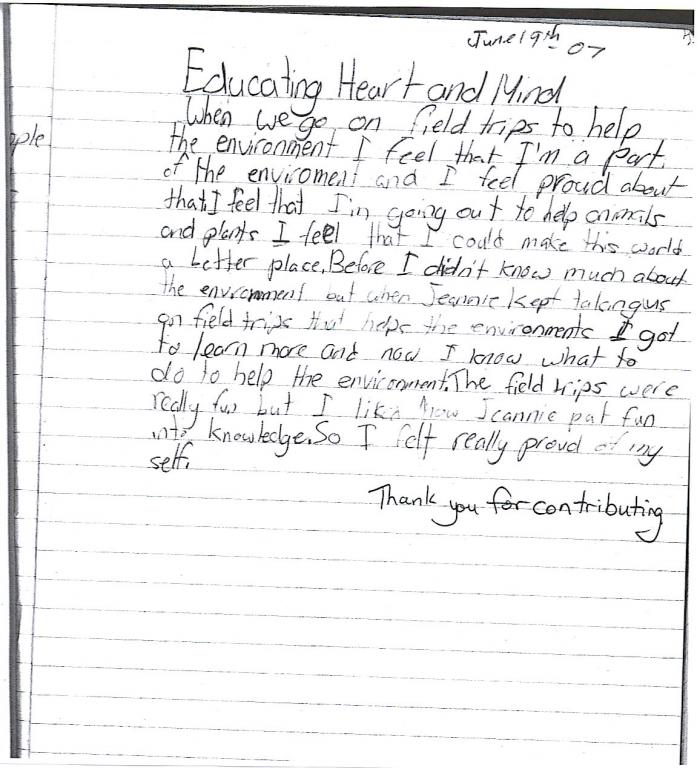 June 19th 07
Educating Heart and Mind
When we go on field trips to help
ople
the environment I feel that I'm a part
of the enviroment and I feel proud about
that. I feel that I'm going out to help animals
and plants I feel that I could make this world
a better place. Before I didn't know much about
the environment but when Jeannie kept taking us
on field trips that helps the environments I got
to learn more and now I know what to
do to help the environment. The field trips were
really fun but I like how Jeannie put fun
into knowledge. So I felt really proud of my
self.
Thank you for contributing